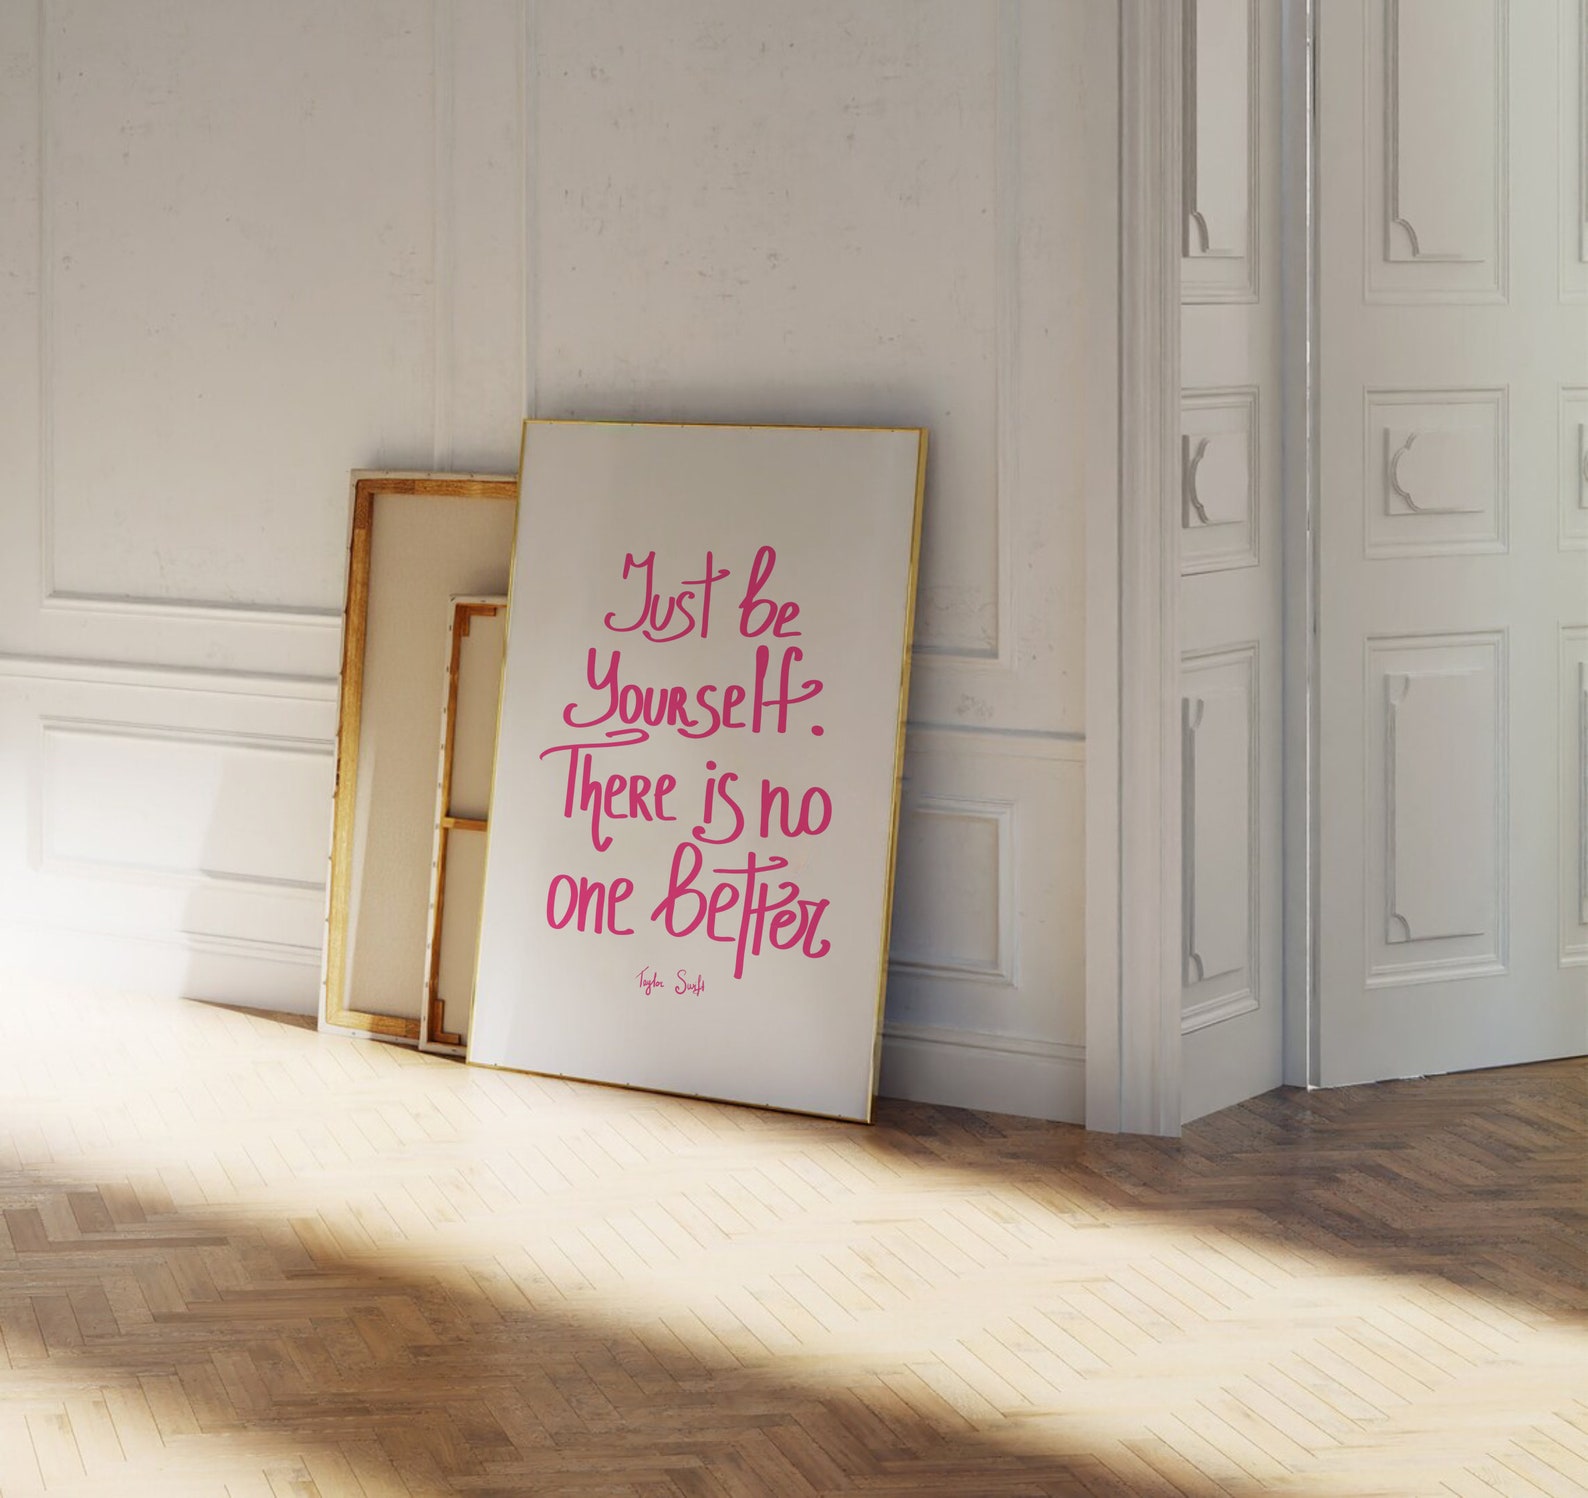 Just be
Yourself.
There is no
one better
Taylor Swift